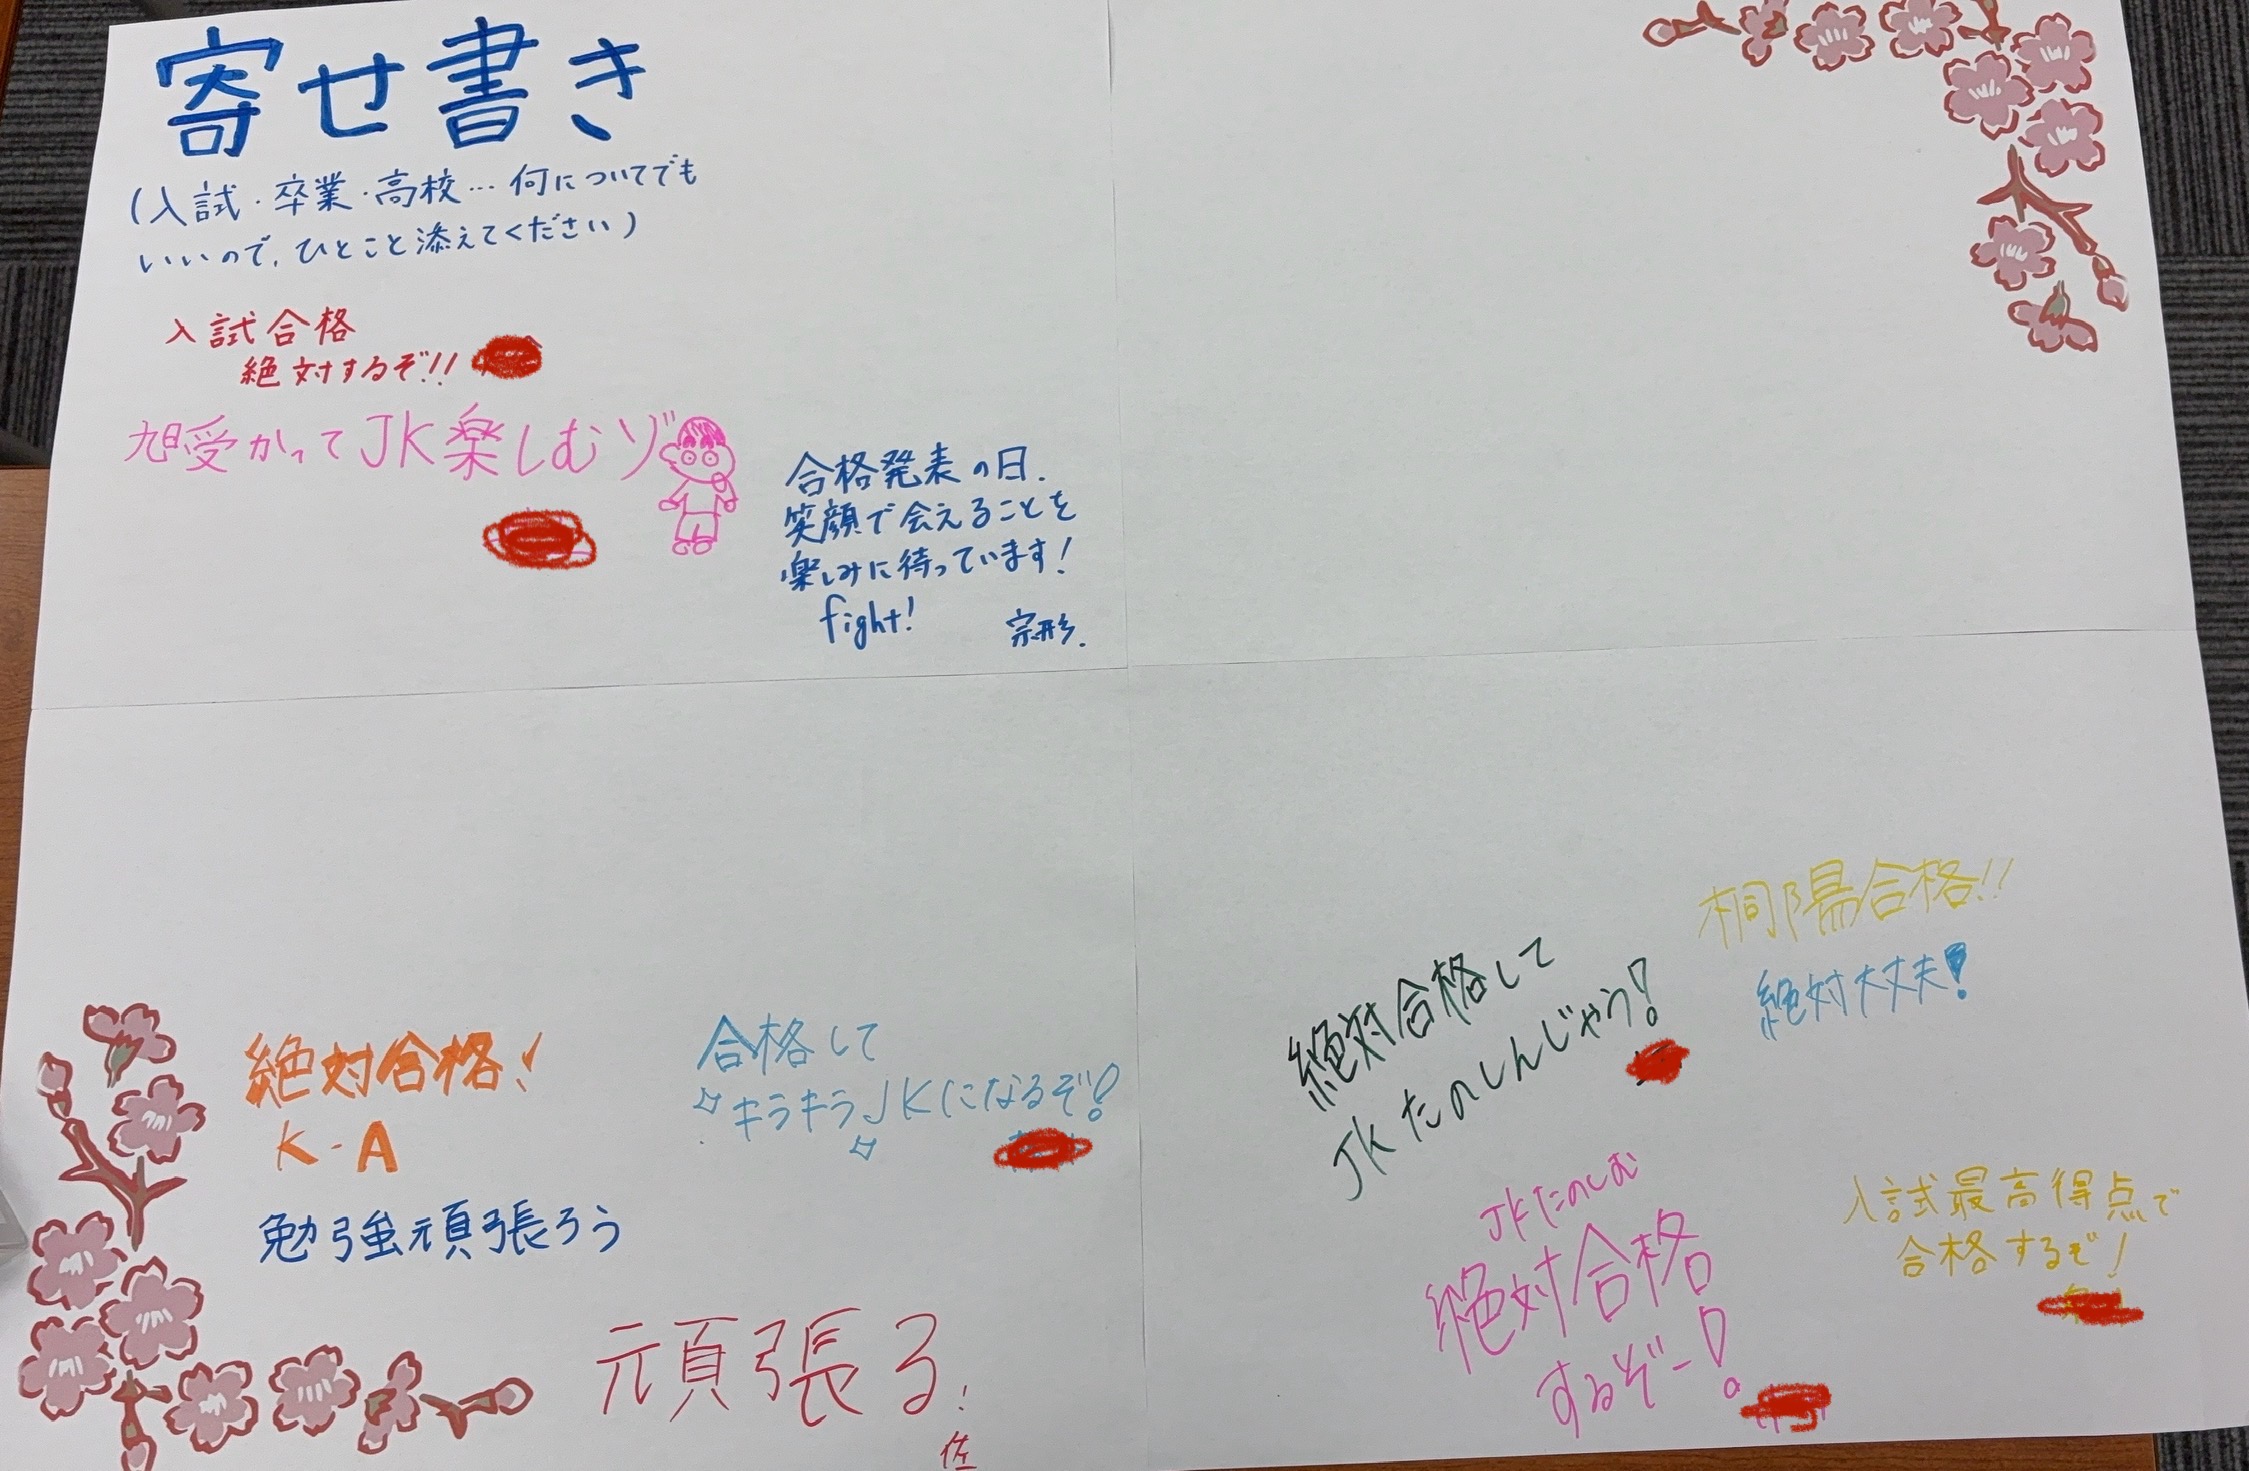 寄せ書き
(入試・卒業・高校…何についてでも
いいので、ひとこと添えてください)
入試合格
絶対するぞ!!
旭受かってJK楽しむゾ
合格発表の日、
笑顔で会えることを
楽しみに待っています!
fight!
宗形.
桐陽合格!!
絶対大丈夫!
絶対合格して
JKたのしんじゃう!
絶対合格!
K-A
合格して
キラキラJKになるぞ!
勉強頑張ろう
JKたのしむ
絶対合格
するぞー!
入試最高得点で
合格するぞ!
頑張る!
佐